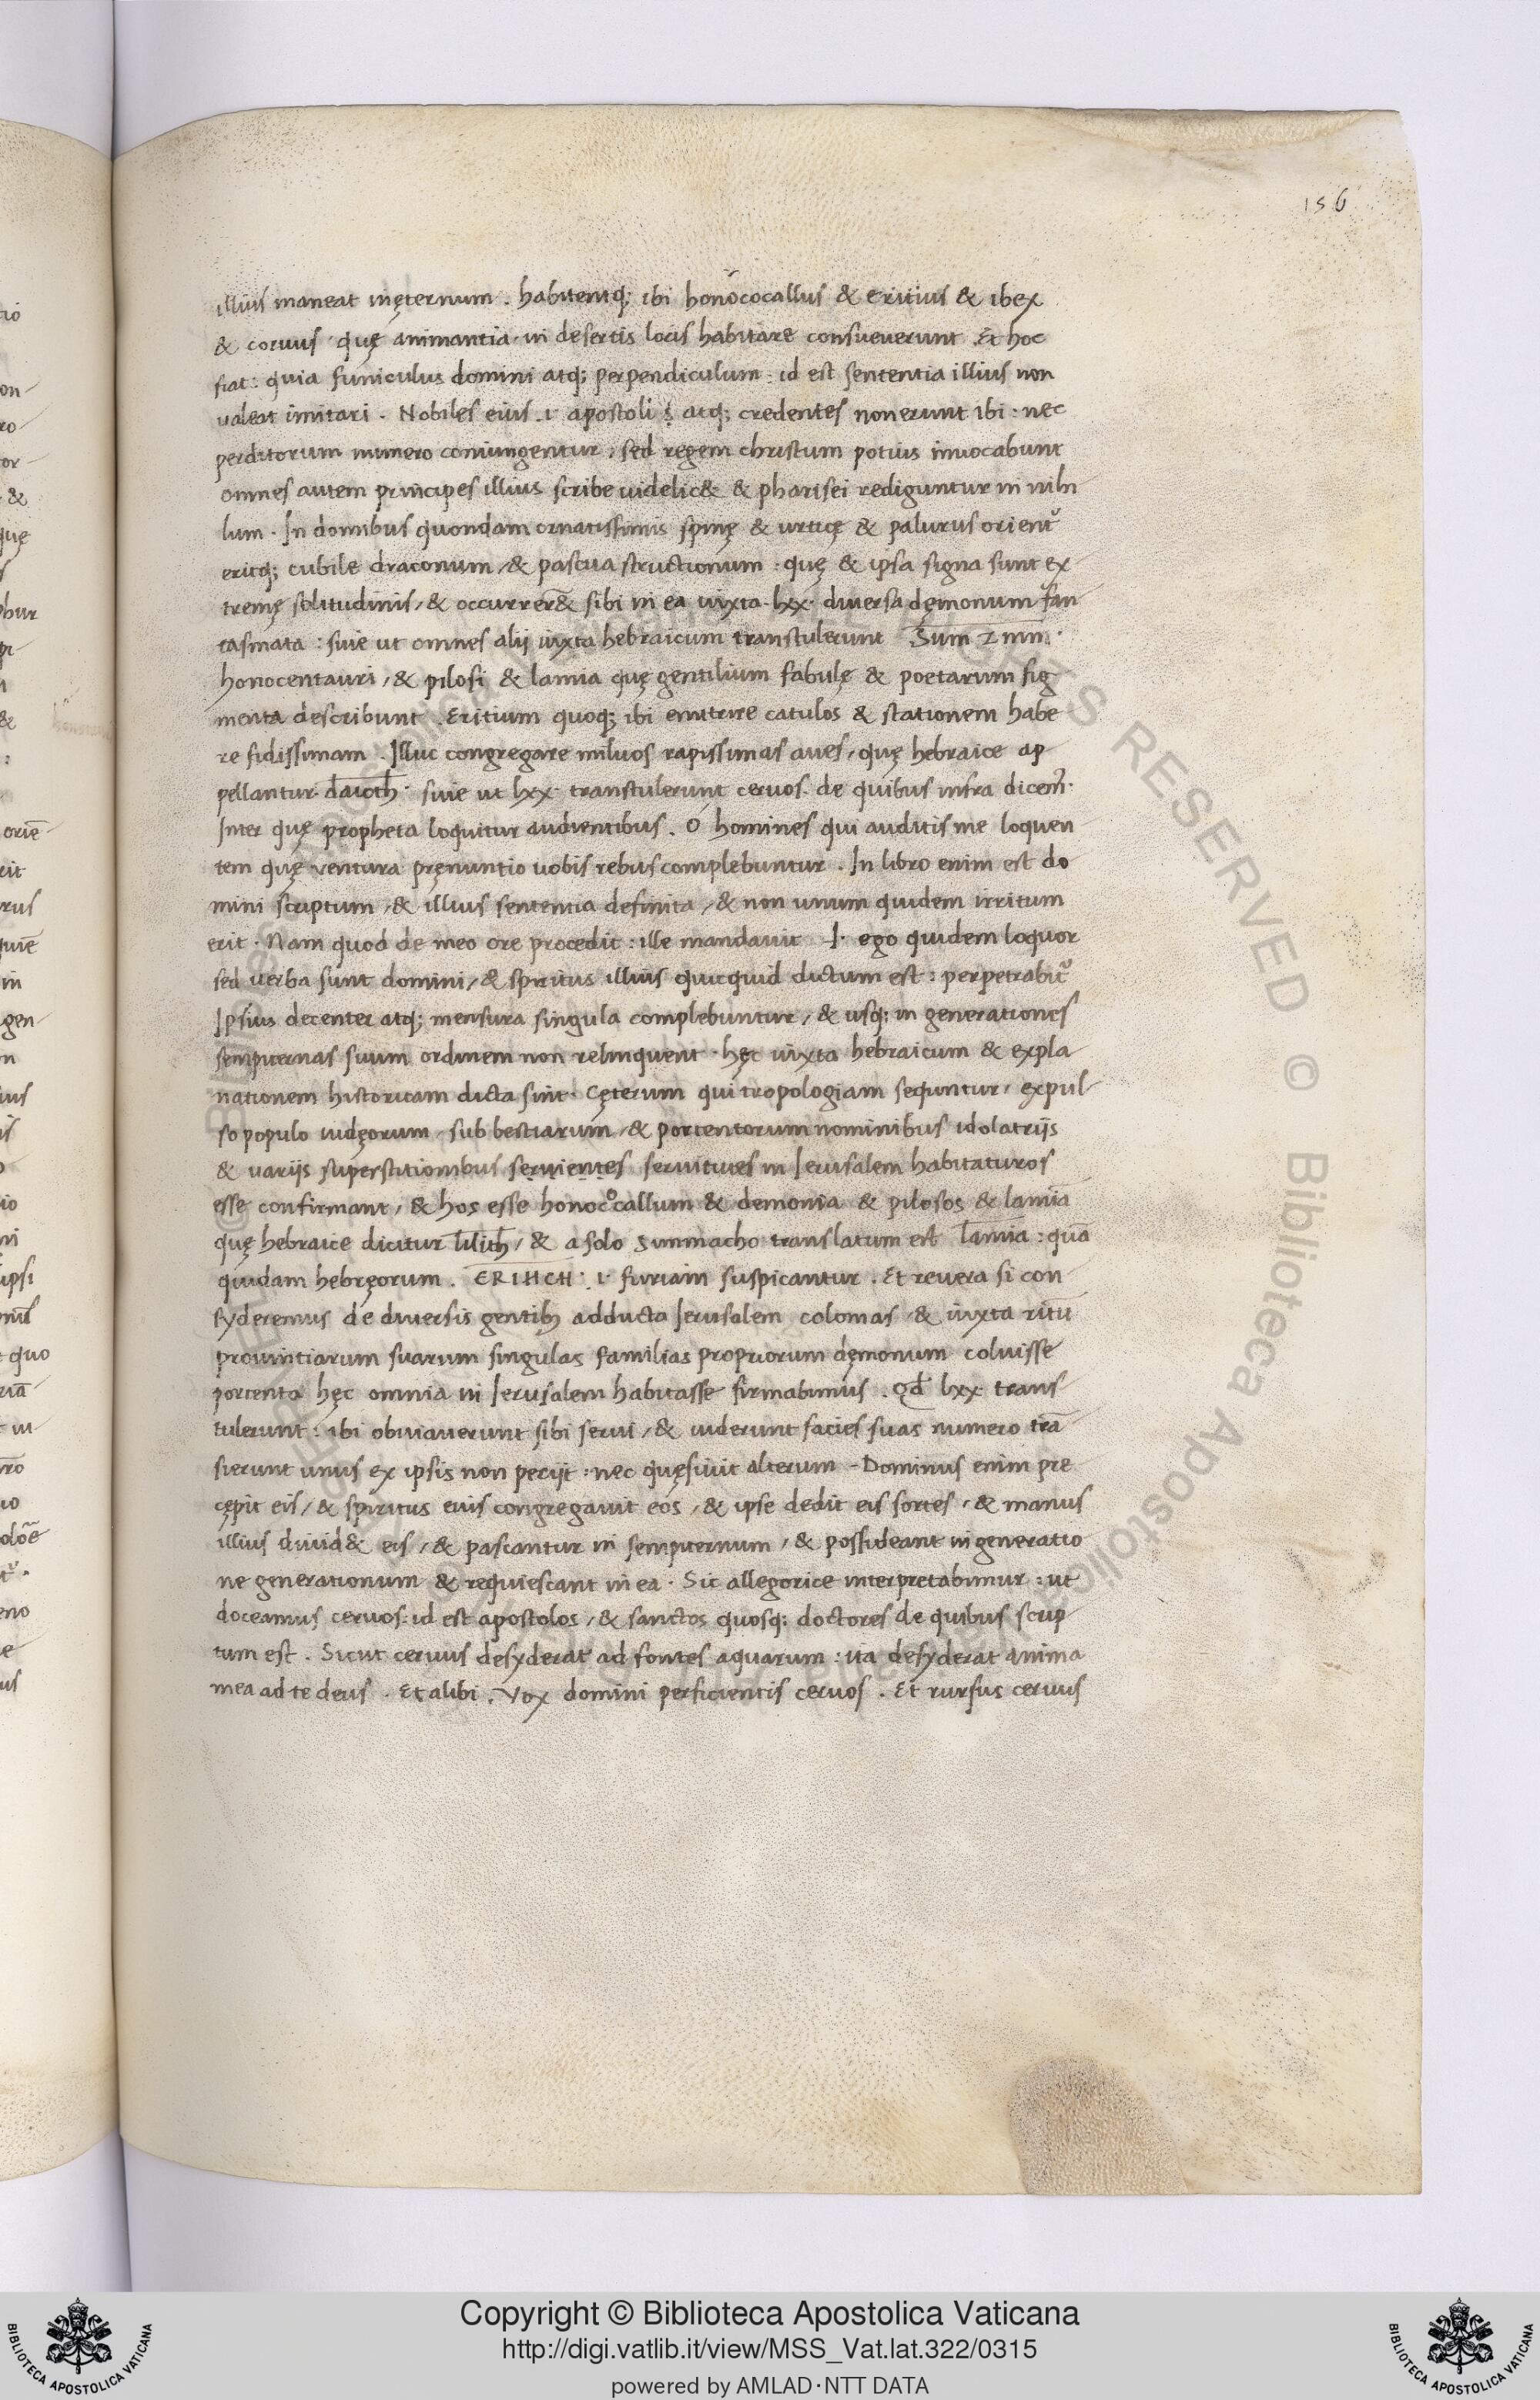 156
illius maneat inęternum . habitentq; ibi honococallus & eritius & ibex
& coruus quę animantia in desertis locis habitare consueuerunt . Et hoc
fiat : quia funiculus domini atq; perpendiculum : id est sententia illius non
ualeat imitari . Nobiles eius .i. apostoli atq; credentes non erunt ibi : nec
perditorum numero coniungentur : sed regem christum potius inuocabunt
omnes autem principes illius scribe uidelic& & pharisei rediguntur in nihi
lum . In domibus quondam ornatissimis spinę & urticę & paliurus orient᷑
eritq; cubile draconum / & pascua structionum : quę & ipsa signa sunt ex
tremę solitudinis / & occurrer& sibi in ea iuxta lxx diuersa dęmonum fan
tasmata : siue ut omnes alij iuxta hebraicum transtulerunt
honocentauri / & pilosi & lamia quę gentilium fabulę & poetarum fig
menta describunt . Eritium quoq; ibi enutrire catulos & stationem habe
re fidissimam . Illuc congregare miluos rapissimas aues / quę hebraice ap
pellantur daioth siue ut lxx transtulerunt ceruos de quibus infra dicem᷑
Inter quę propheta loquitur audientibus . O homines qui auditis me loquen
tem quę uentura pręnuntio uobis rebus complebuntur . In libro enim est do
mini scriptum / & illius sententia definita / & non unum quidem irritum
erit . Nam quod de meo ore procedit : ille mandauit .I. ego quidem loquor
sed uerba sunt domini / & spiritus illius quicquid dictum est : perpetrabit᷑
Ipsius decenter atq; mensura singula complebuntur / & usq; in generationes
sempiternas suum ordinem non relinquent . hęc iuxta hebraicum & expla
nationem historicam dicta sint . Cęterum qui tropologiam sequntur / expul
so populo iudęorum / sub bestiarum / & portentorum nominibus idolatrijs
& uarijs superstitionibus seruientes seruitutes in Ierusalem habitaturos
esse confirmant / & hos esse honococallum & demonia & pilosos & lamiā
quę hebraice dicitur lilith / & a solo Simmacho translatum est lamia : quā
quidam hebręorum . ERIHCH .i. furiam suspicantur . Et reuera si con
syderemus de diuersis gentib; adducta Ierusalem colonias / & iuxta ritū
prouintiarum suarum singulas familias propriorum dęmonum coluisse
portenta hęc omnia in Ierusalem habitasse firmabimus . Qd lxx trans
tulerunt : ibi obuiauerunt sibi serui / & uiderunt facies suas numero trā
sierunt unus ex ipsis non perijt : nec quęsiuit alterum - Dominus enim pre
cępit eis / & spiritus eius congregauit eos / & ipse dedit eis sortes / & manus
illius diuid& eis / & pascantur in sempiternum / & possideant in generatio
ne generationum & requiescant in ea . Sic allegorice interpretabimur : ut
doceamus ceruos : id est apostolos / & sanctos quosq; doctores de quibus scrip
tum est . Sicut ceruus desyderat ad fontes aquarum : ita desyderat anima
mea ad te deus . Et alibi . Vox domini perficientis ceruos . Et rursus ceruus
Copyright © Biblioteca Apostolica Vaticana
http://digi.vatlib.it/view/MSS_Vat.lat.322/0315
powered by AMLAD·NTT DATA